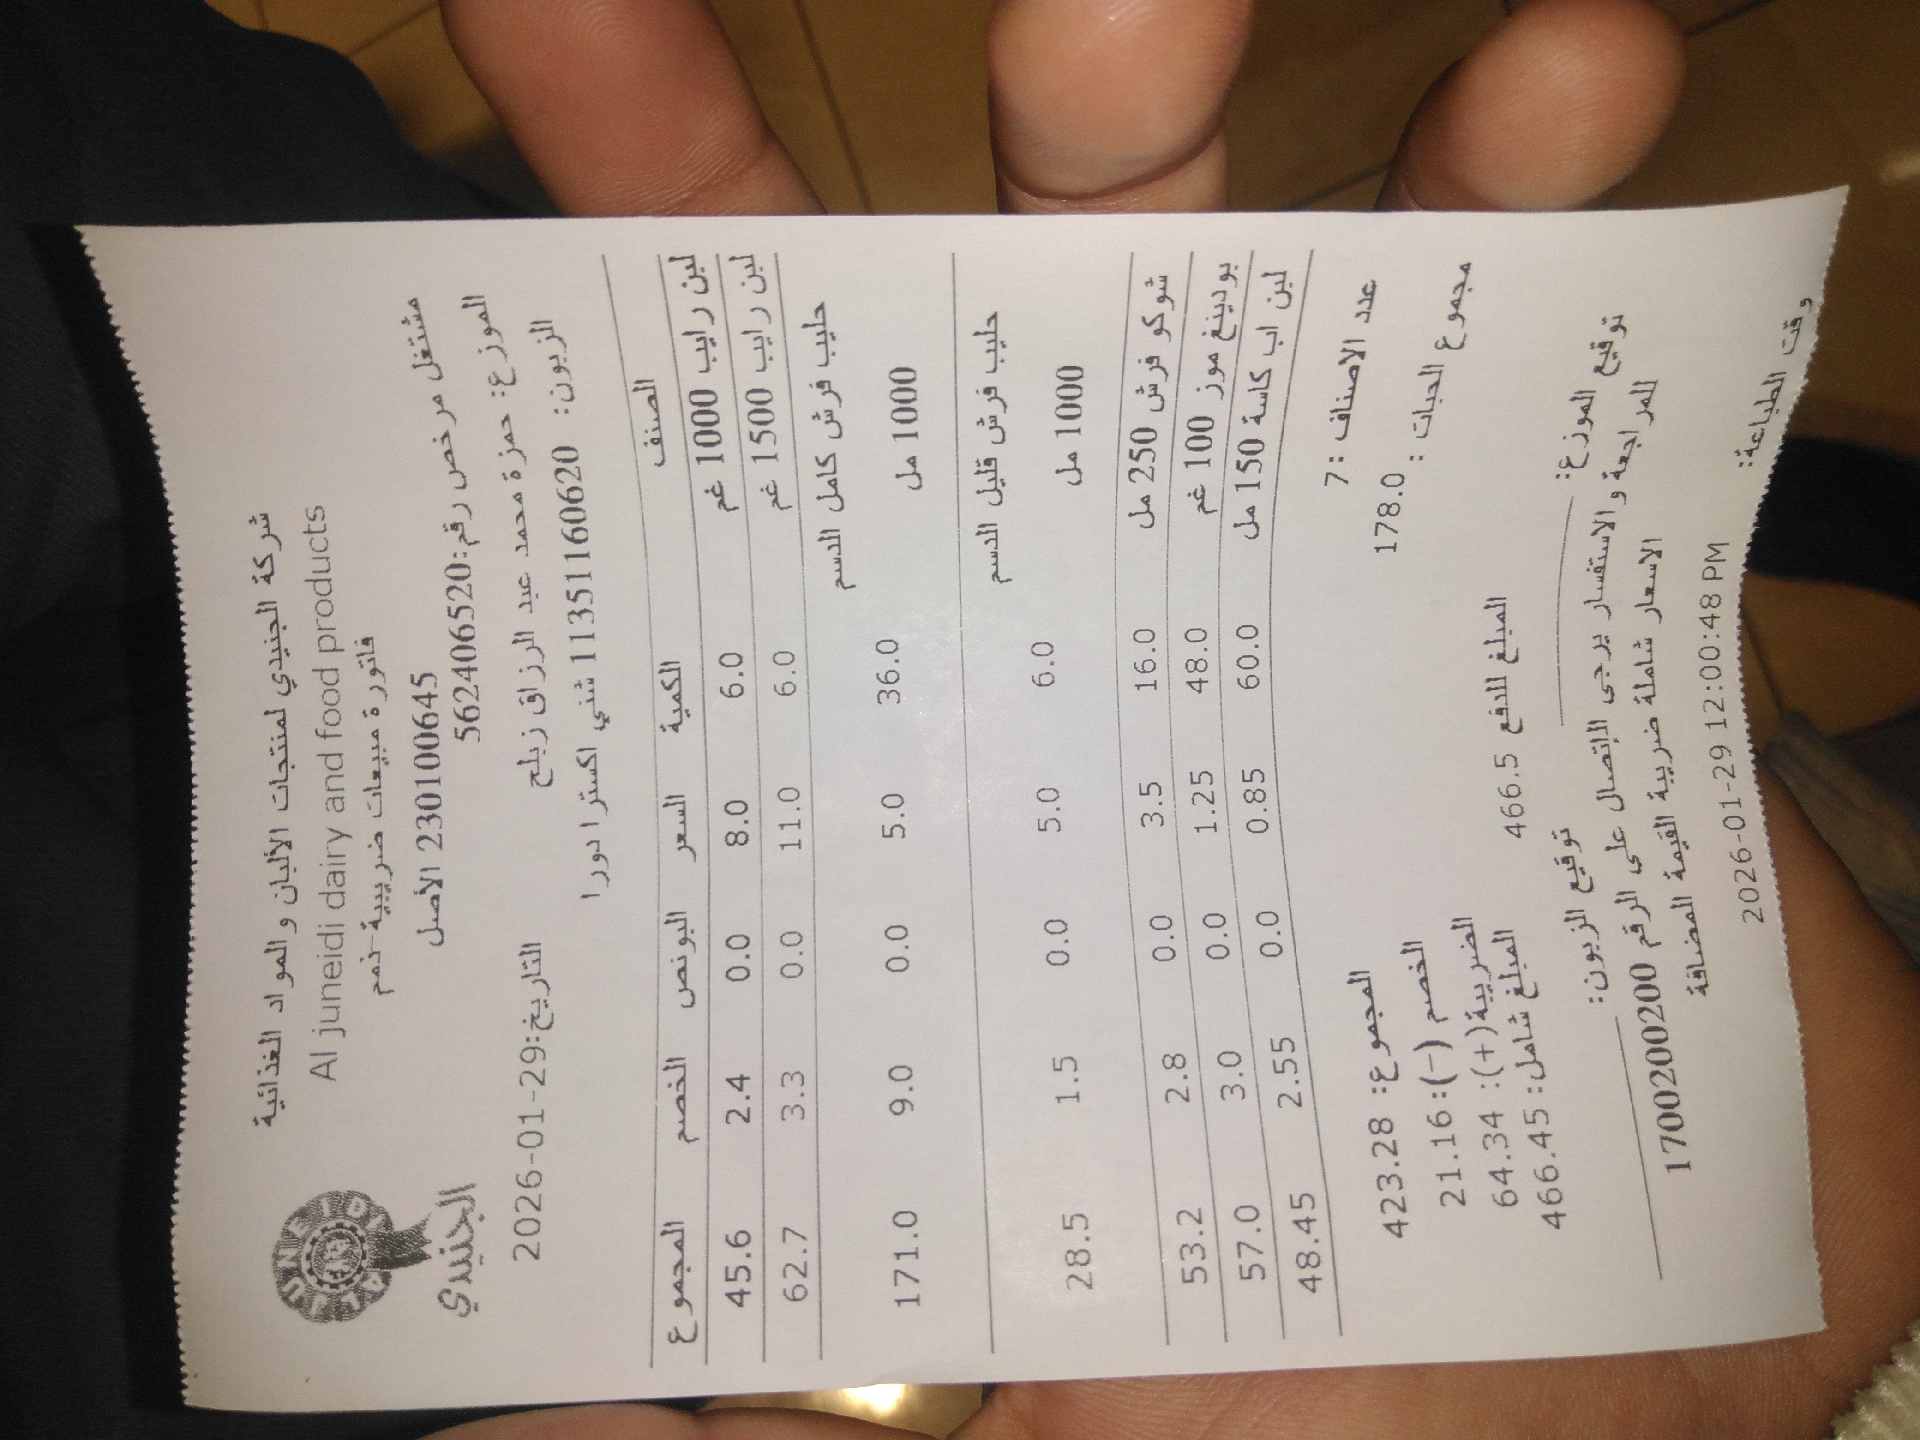 شركة الجنيدي لمنتجات الألبان والمواد الغذائية
Al juneidi dairy and food products
فاتورة مبيعات ضريبية-ذمم
230100645 الأصل
مشتغل مرخص رقم:562406520
AL JUNEIDI
الجنيدي
الموزع: حمزة محمد عبد الرزاق زبلح
التاريخ:2026-01-29
الزبون: 11351160620 شني اكسترا دورا
الصنف الكمية السعر البونص الخصم المجموع
لبن رايب 1000 غم 6.0 8.0 0.0 2.4 45.6
لبن رايب 1500 غم 6.0 11.0 0.0 3.3 62.7
حليب فرش كامل الدسم
1000 مل 36.0 5.0 0.0 9.0 171.0
حليب فرش قليل الدسم
1000 مل 6.0 5.0 0.0 1.5 28.5
شوكو فرش 250 مل 16.0 3.5 0.0 2.8 53.2
بودينغ موز 100 غم 48.0 1.25 0.0 3.0 57.0
لبن اب كاسة 150 مل 60.0 0.85 0.0 2.55 48.45
عدد الاصناف :7
المجموع: 423.28
مجموع الحبات : 178.0
الخصم (-):21.16
الضريبة(+): 64.34
المبلغ للدفع 466.5
المبلغ شامل: 466.45
توقيع الموزع:
توقيع الزبون:
للمراجعة والاستفسار يرجى الإتصال على الرقم 1700200200
الاسعار شاملة ضريبة القيمة المضافة
وقت الطباعة:
2026-01-29 12:00:48 PM